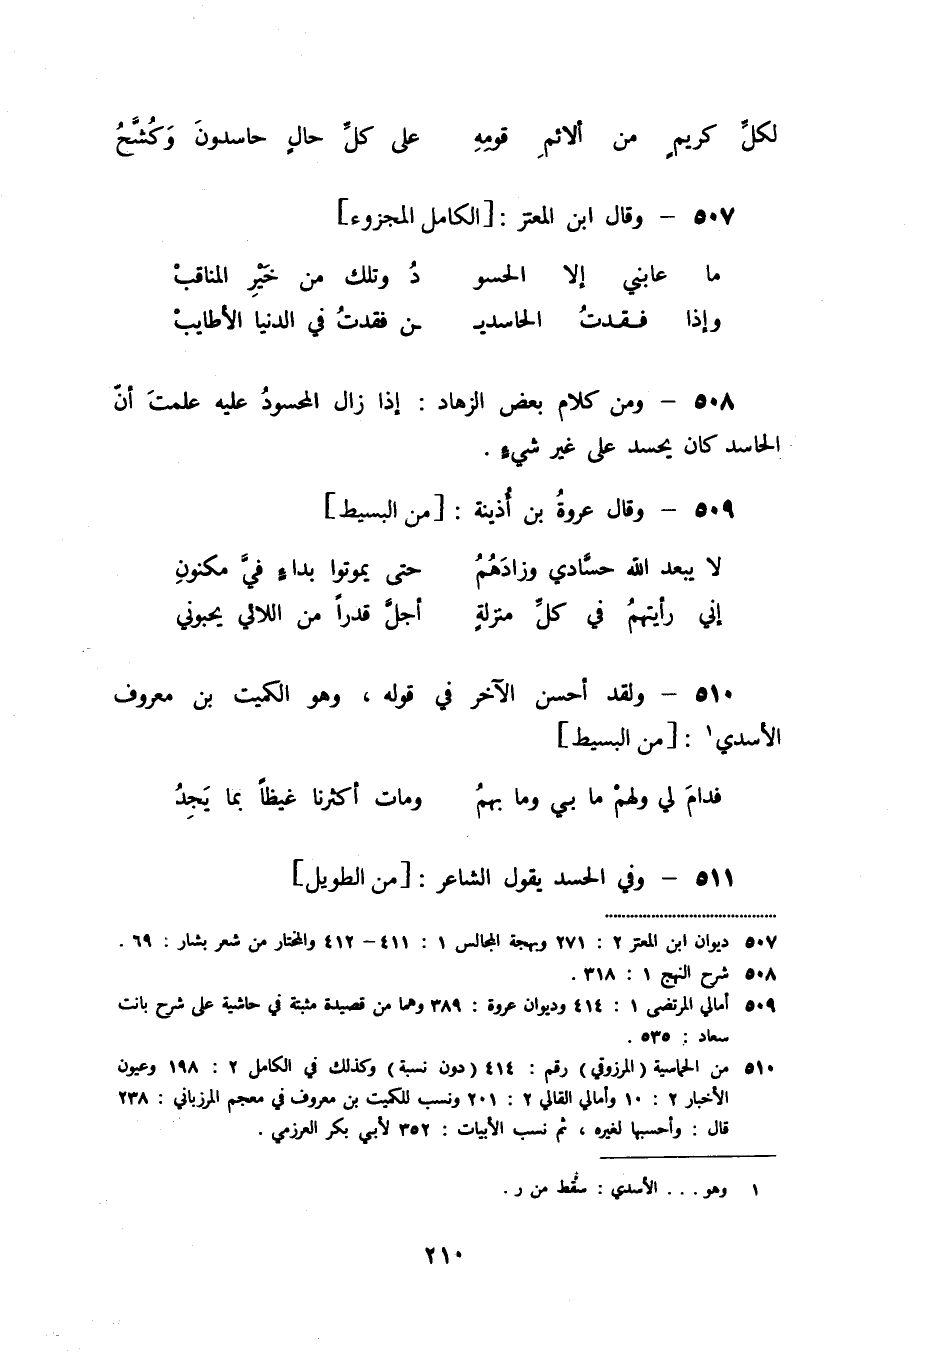 لكلِّ كريمٍ من ألائمِ قومِهِ على كلِّ حالٍ حاسدونَ وَكُشَّحُ
٥٠٧ – وقال ابن المعتز : [الكامل المجزوء]
ما عابني إلا الحسو دُ وتلك من خَيْرِ المناقبْ
وإذا فـقـدتُ الحاسديـ ـن فقدتُ في الدنيا الأطايبْ
٥٠٨ – ومن كلام بعض الزهاد : إذا زال المحسودُ عليه علمتَ أنّ
الحاسد كان يحسد على غير شيءٍ .
٥٠٩ – وقال عروةُ بن أُذينة : [من البسيط]
لا يبعد الله حسَّادي وزادَهُمُ حتى يموتوا بداءٍ فيَّ مكنونِ
إني رأيتهمُ في كلِّ منزلةٍ أجلَّ قدراً من اللائي يحبوني
٥١٠ – ولقد أحسن الآخر في قوله ، وهو الكميت بن معروف
الأسدي١ : [من البسيط]
فدامَ لي ولهمْ ما بـي وما بهمُ ومات أكثرنا غيظاً بما يَجِدُ
٥١١ – وفي الحسد يقول الشاعر : [من الطويل]
٥٠٧ ديوان ابن المعتز ٢ : ٢٧١ وبهجة المجالس ١ : ٤١١–٤١٢ والمختار من شعر بشار : ٦٩ .
٥٠٨ شرح النهج ١ : ٣١٨ .
٥٠٩ أمالي المرتضى ١ : ٤١٤ وديوان عروة : ٣٨٩ وهما من قصيدة مثبتة في حاشية على شرح بانت
سعاد : ٥٣٥ .
٥١٠ من الحماسية (المرزوقي) رقم : ٤١٤ (دون نسبة) وكذلك في الكامل ٢ : ١٩٨ وعيون
الأخبار ٢ : ١٠ وأمالي القالي ٢ : ٢٠١ ونسب للكميت بن معروف في معجم المرزباني : ٢٣٨
قال : وأحسبها لغيره ، ثم نسب الأبيات : ٣٥٢ لأبي بكر العرزمي .
١ وهو . . . الأسدي : سقط من ر .
٢١٠